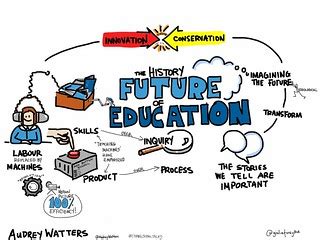 INNOVATION CONSERVATION
THE HISTORY
FUTURE
OF
EDUCATION
IMAGINING
THE FUTURE
TRANSFORM
SKILLS
OVER
INQUIRY
LABOUR
REPLACED BY
MACHINES
PRODUCT
OVER
PROCESS
THE STORIES
WE TELL ARE
IMPORTANT
100%
EFFICIENCY!
AUDREY WATTERS